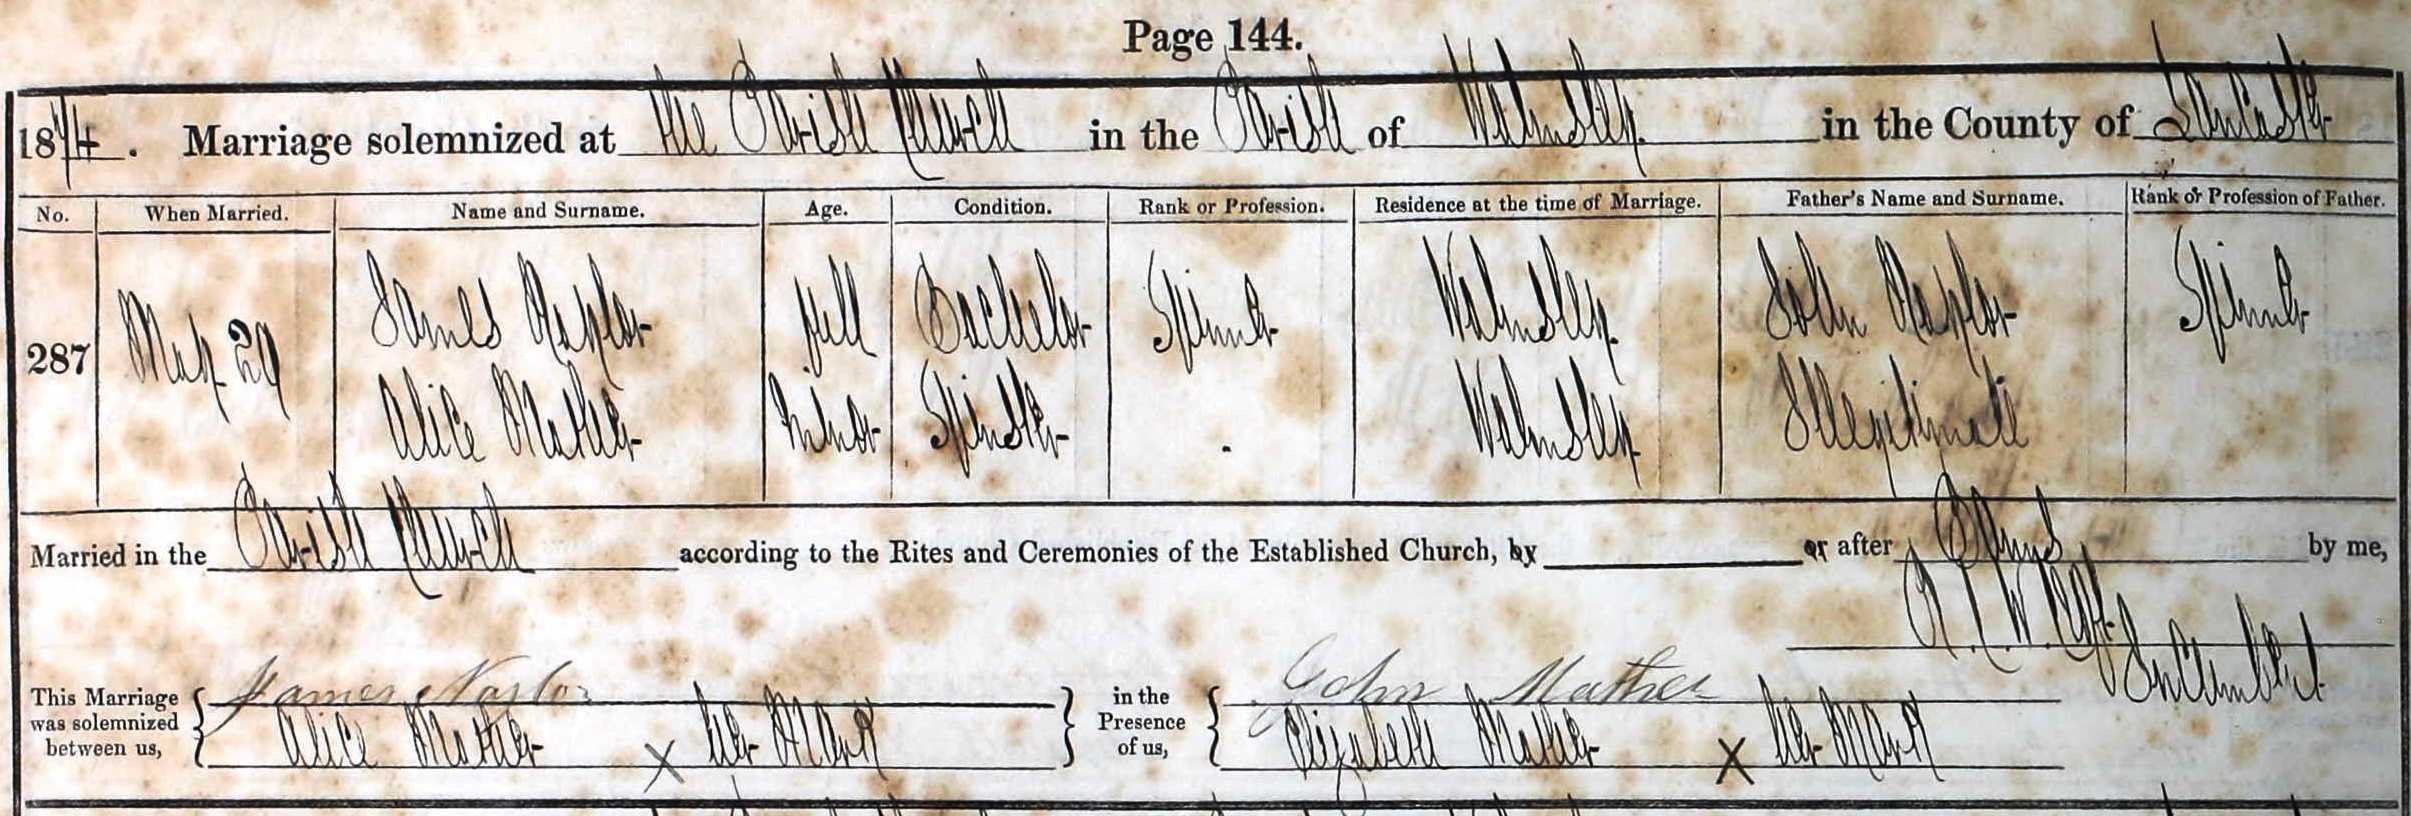 Page 144.
1874. Marriage solemnized at the Parish Church in the Parish of Walmsley in the County of Lancaster
No. When Married. Name and Surname. Age. Condition. Rank or Profession. Residence at the time of Marriage. Father's Name and Surname. Rank or Profession of Father.
James Naylor full Bachelor Spinner Walmsley John Naylor Spinner
287 May 29
Alice Mather minor Spinster - Walmsley Illegitimate
Married in the Parish Church according to the Rites and Ceremonies of the Established Church, by or after Banns by me,
Incumbent
This Marriage was solemnized between us, James Naylor in the Presence of us, John Mather
Alice Mather X her Mark Elizabeth Mather X her Mark